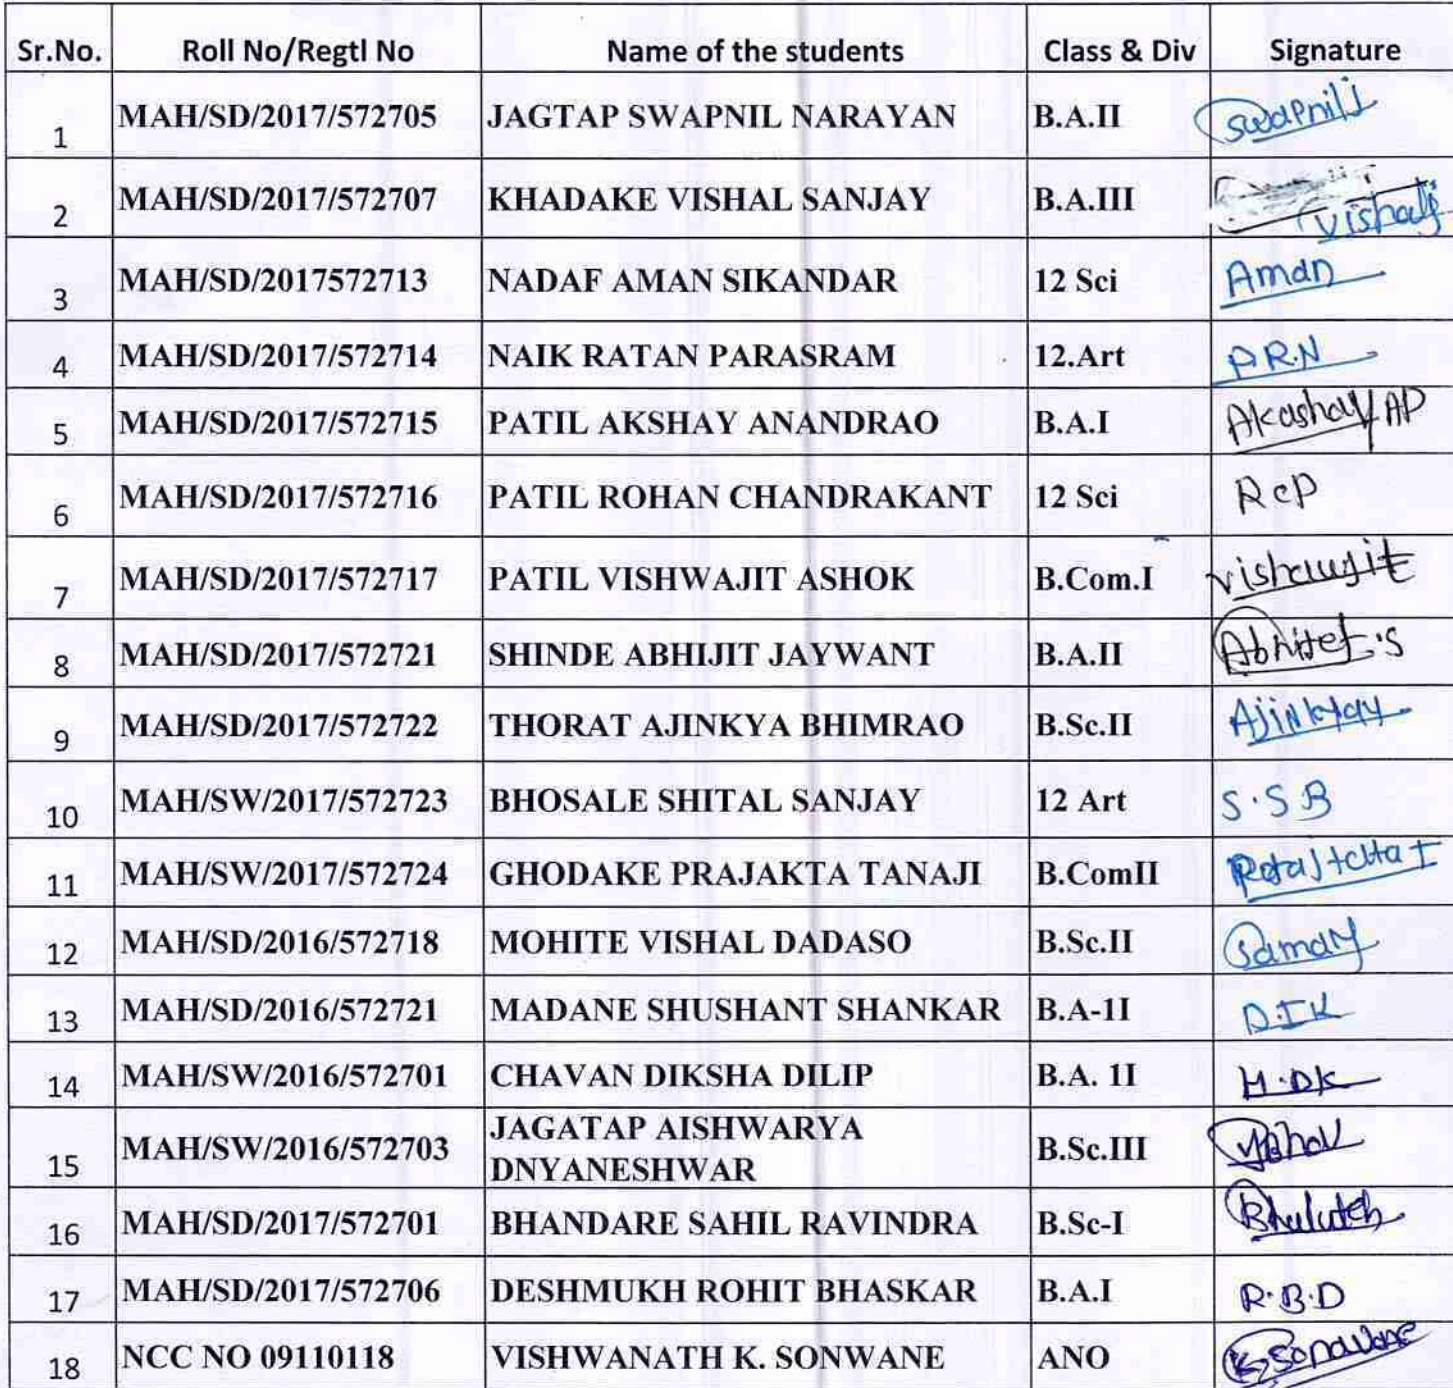 Sr.No. Roll No/Regtl No Name of the students Class & Div Signature
1 MAH/SD/2017/572705 JAGTAP SWAPNIL NARAYAN B.A.II Swapnil
2 MAH/SD/2017/572707 KHADAKE VISHAL SANJAY B.A.III
3 MAH/SD/2017572713 NADAF AMAN SIKANDAR 12 Sci Aman
4 MAH/SD/2017/572714 NAIK RATAN PARASRAM 12.Art P.R.N
5 MAH/SD/2017/572715 PATIL AKSHAY ANANDRAO B.A.I Akashay AP
6 MAH/SD/2017/572716 PATIL ROHAN CHANDRAKANT 12 Sci RCP
7 MAH/SD/2017/572717 PATIL VISHWAJIT ASHOK B.Com.I
8 MAH/SD/2017/572721 SHINDE ABHIJIT JAYWANT B.A.II
9 MAH/SD/2017/572722 THORAT AJINKYA BHIMRAO B.Sc.II
10 MAH/SW/2017/572723 BHOSALE SHITAL SANJAY 12 Art S.S B
11 MAH/SW/2017/572724 GHODAKE PRAJAKTA TANAJI B.ComII
12 MAH/SD/2016/572718 MOHITE VISHAL DADASO B.Sc.II
13 MAH/SD/2016/572721 MADANE SHUSHANT SHANKAR B.A-1I D.I.K
14 MAH/SW/2016/572701 CHAVAN DIKSHA DILIP B.A. 1I M.DK
15 MAH/SW/2016/572703 JAGATAP AISHWARYA B.Sc.III
DNYANESHWAR
16 MAH/SD/2017/572701 BHANDARE SAHIL RAVINDRA B.Sc-I
17 MAH/SD/2017/572706 DESHMUKH ROHIT BHASKAR B.A.I R.B.D
18 NCC NO 09110118 VISHWANATH K. SONWANE ANO